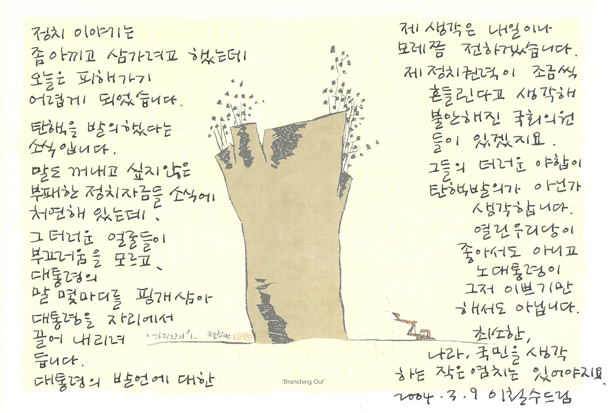 정치 이야기는
좀 아끼고 삼가려고 했는데
오늘은 피해가기
어렵게 되었습니다.
탄핵을 발의했다는
소식입니다.
말도 꺼내고 싶지않은
부패한 정치자금들 소식에
처연해 있는데,
그 더러운 얼굴들이
부끄러움을 모르고,
대통령의
말 몇마디를 핑계삼아
대통령을 자리에서
끌어 내리려
듭니다.
대통령의 발언에 대한
제 생각은 내일이나
모레쯤 전하겠습니다.
제 정치권력이 조금씩
흔들린다고 생각해
불안해진 국회의원
들이 있겠지요.
그들의 더러운 야합이
탄핵발의가 아닌가
생각합니다.
열린우리당이
좋아서도 아니고
노대통령이
그저 이쁘기만
해서도 아닙니다.
최소한,
나라, 국민을 생각
하는 작은 염치는 있어야지요.
2004. 3. 9 이철수드림
'가지치기' 1.
'Branching Out'